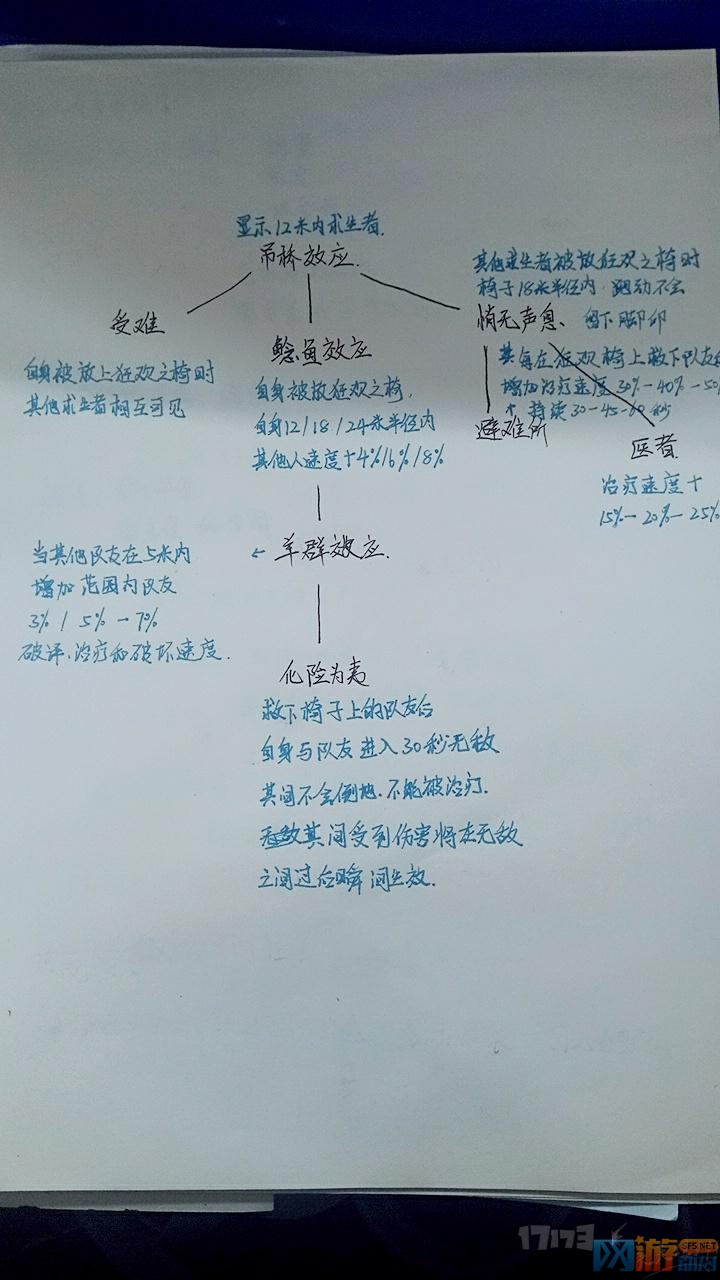 显示12米内求生者.
吊桥效应.
其他求生者被放狂欢之椅时
椅子18米半径内 跑动不会
悄无声息、留下脚印
受难
鲶鱼效应
自身被放上狂欢之椅时
其他求生者相互可见
自身被放狂欢之椅,
自身12/18/24米半径内
其他人速度+4%/6%/8%
其每在狂欢椅上救下队友后
增加治疗速度30%-40%-50%
持续30-45-60秒
避难所
医者
治疗速度+
15%-20%-25%
当其他队友在5米内
增加范围内队友
3% / 5% - 7%
破译、治疗和破坏速度.
← 羊群效应.
化险为夷
救下椅子上的队友后
自身与队友进入30秒无敌
其间不会倒地.不能被治疗.
无敌其间受到伤害将在无敌
之间过后瞬间生效.
17173
网游
SF5.NET